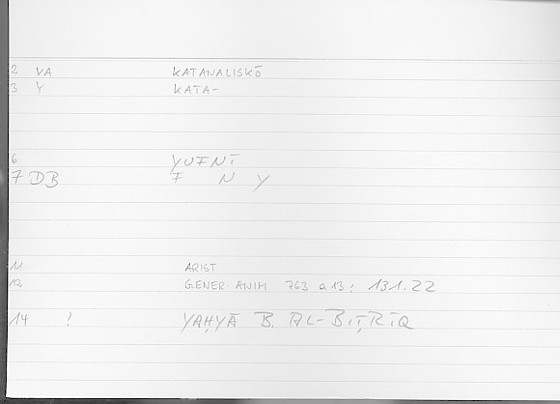 2 VA KATANALISKŌ
3 Y KATA-
6 YUFNĪ
7 DB F N Y
11 ARIST
12 GENER ANIM 763 a 13: 131.22
14 ? YAḤYĀ B. AL-BIṬRĪQ